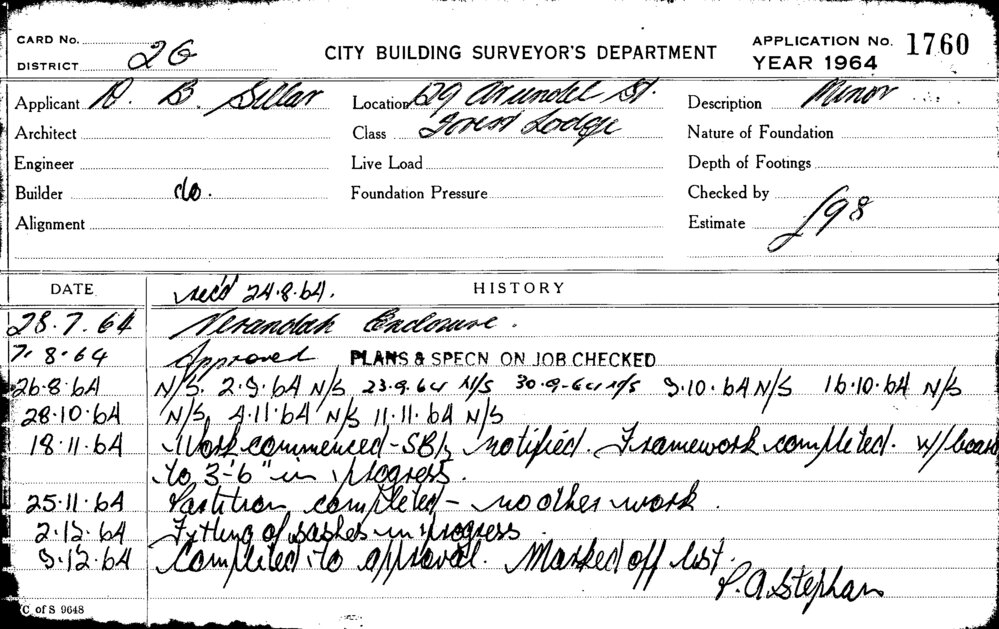 CARD No. 2G CITY BUILDING SURVEYOR'S DEPARTMENT APPLICATION No. 1760
DISTRICT YEAR 1964
Applicant D. B. Sellar Location 129 Arundel St. Description Minor
Architect Class Forest Lodge Nature of Foundation
Engineer Live Load Depth of Footings
Builder do. Foundation Pressure Checked by
Alignment Estimate £98
DATE rec'd 24.8.64. HISTORY
28.7.64 Verandah Enclosure.
7.8.64 Approved PLANS & SPECN ON JOB CHECKED
26.8.64 N/S. 2.9.64 N/S 23.9.64 N/S 30.9.64 N/S 9.10.64 N/S 16.10.64 N/S
28.10.64 N/S, 4.11.64 N/S 11.11.64 N/S
18.11.64 Work commenced - notified. Framework completed. w/board
to 3'-6" in progress.
25.11.64 Partition completed - no other work.
2.12.64 Fitting of sashes in progress.
9.12.64 Completed to approval. Marked off list.
P.A. Stephan
C of S 9648